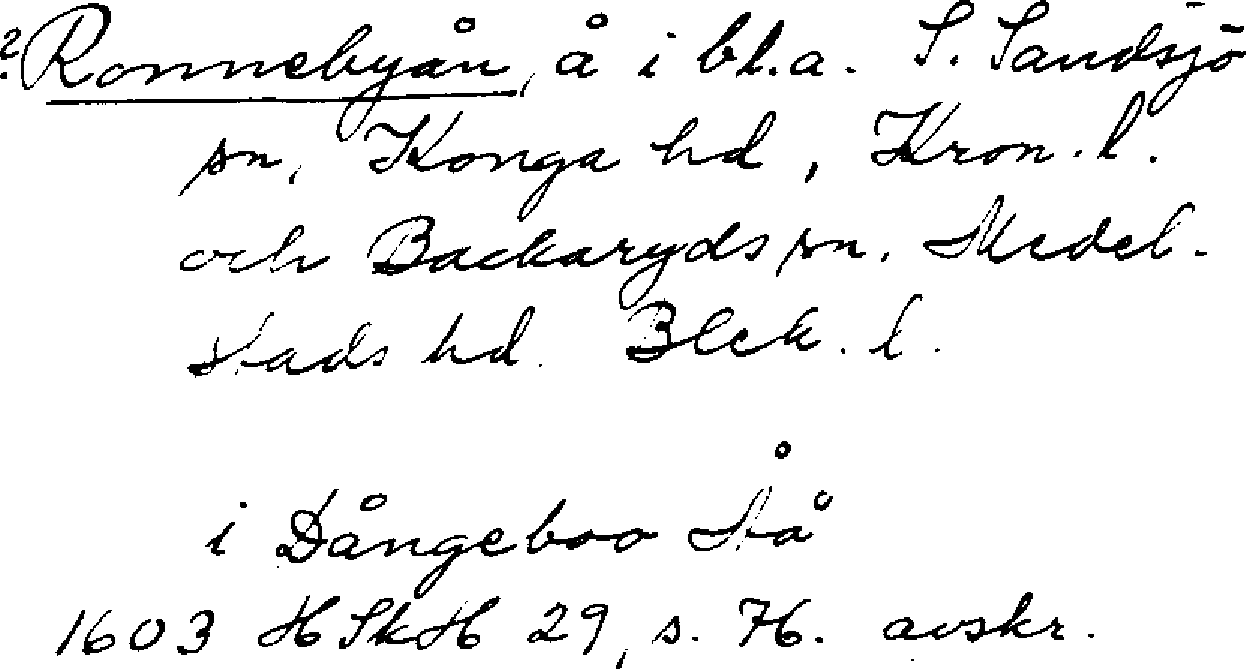 ? Ronnebyån, å i bl.a. S. Sandsjö
sn, Konga hd, Kron. l.
och Backaryds sn. Medel-
stads hd. Blek. l.
i Dångeboo Åå
1603 HSkH 29, s. 76. avskr.